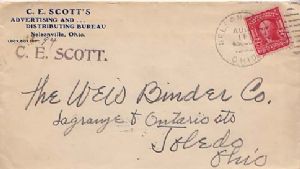 C. E. SCOTT'S
ADVERTISING AND . . .
DISTRIBUTING BUREAU
Nelsonville, Ohio.
C. E. SCOTT.
AUG
OHIO
The Weis Binder Co.
Lagrange & Ontario sts
Toledo
Ohio